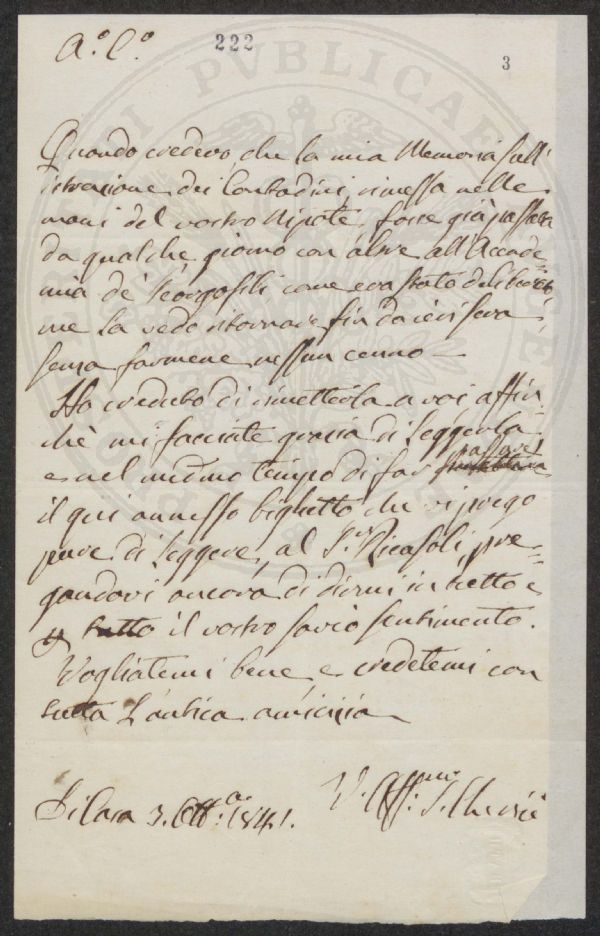 A.º C.º
222
3
Quando credevo che la mia Memoria sull'
istruzione dei Contadini, rimessa nelle
mani del vostro Nipote, fosse già passata
da qualche giorno con altre all'Accade=
mia de' Georgofili come era stato deliberato
me la vedo ritornare fin da ieri sera,
senza farmene nessun cenno —
Ho creduto di rimetterla a voi affin
chè mi facciate grazia di leggerla
e nel medmo tempo di far passare
il qui annesso biglietto che vi prego
pure di leggere, al Sr. Ricasoli, pre=
gandovi ancora di dirmi in tutto e
p tutto il vostro savio sentimento.
Vogliatemi bene, e credetemi con
tutta l'antica amicizia
Di Casa 3. Ott.a 1841.
V. Affmo.